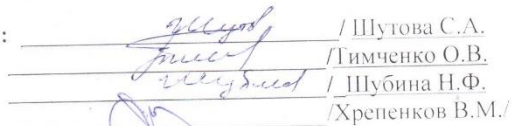 : / Шутова С.А.
/Тимченко О.В.
/ Шубина Н.Ф.
/Хрепенков В.М./